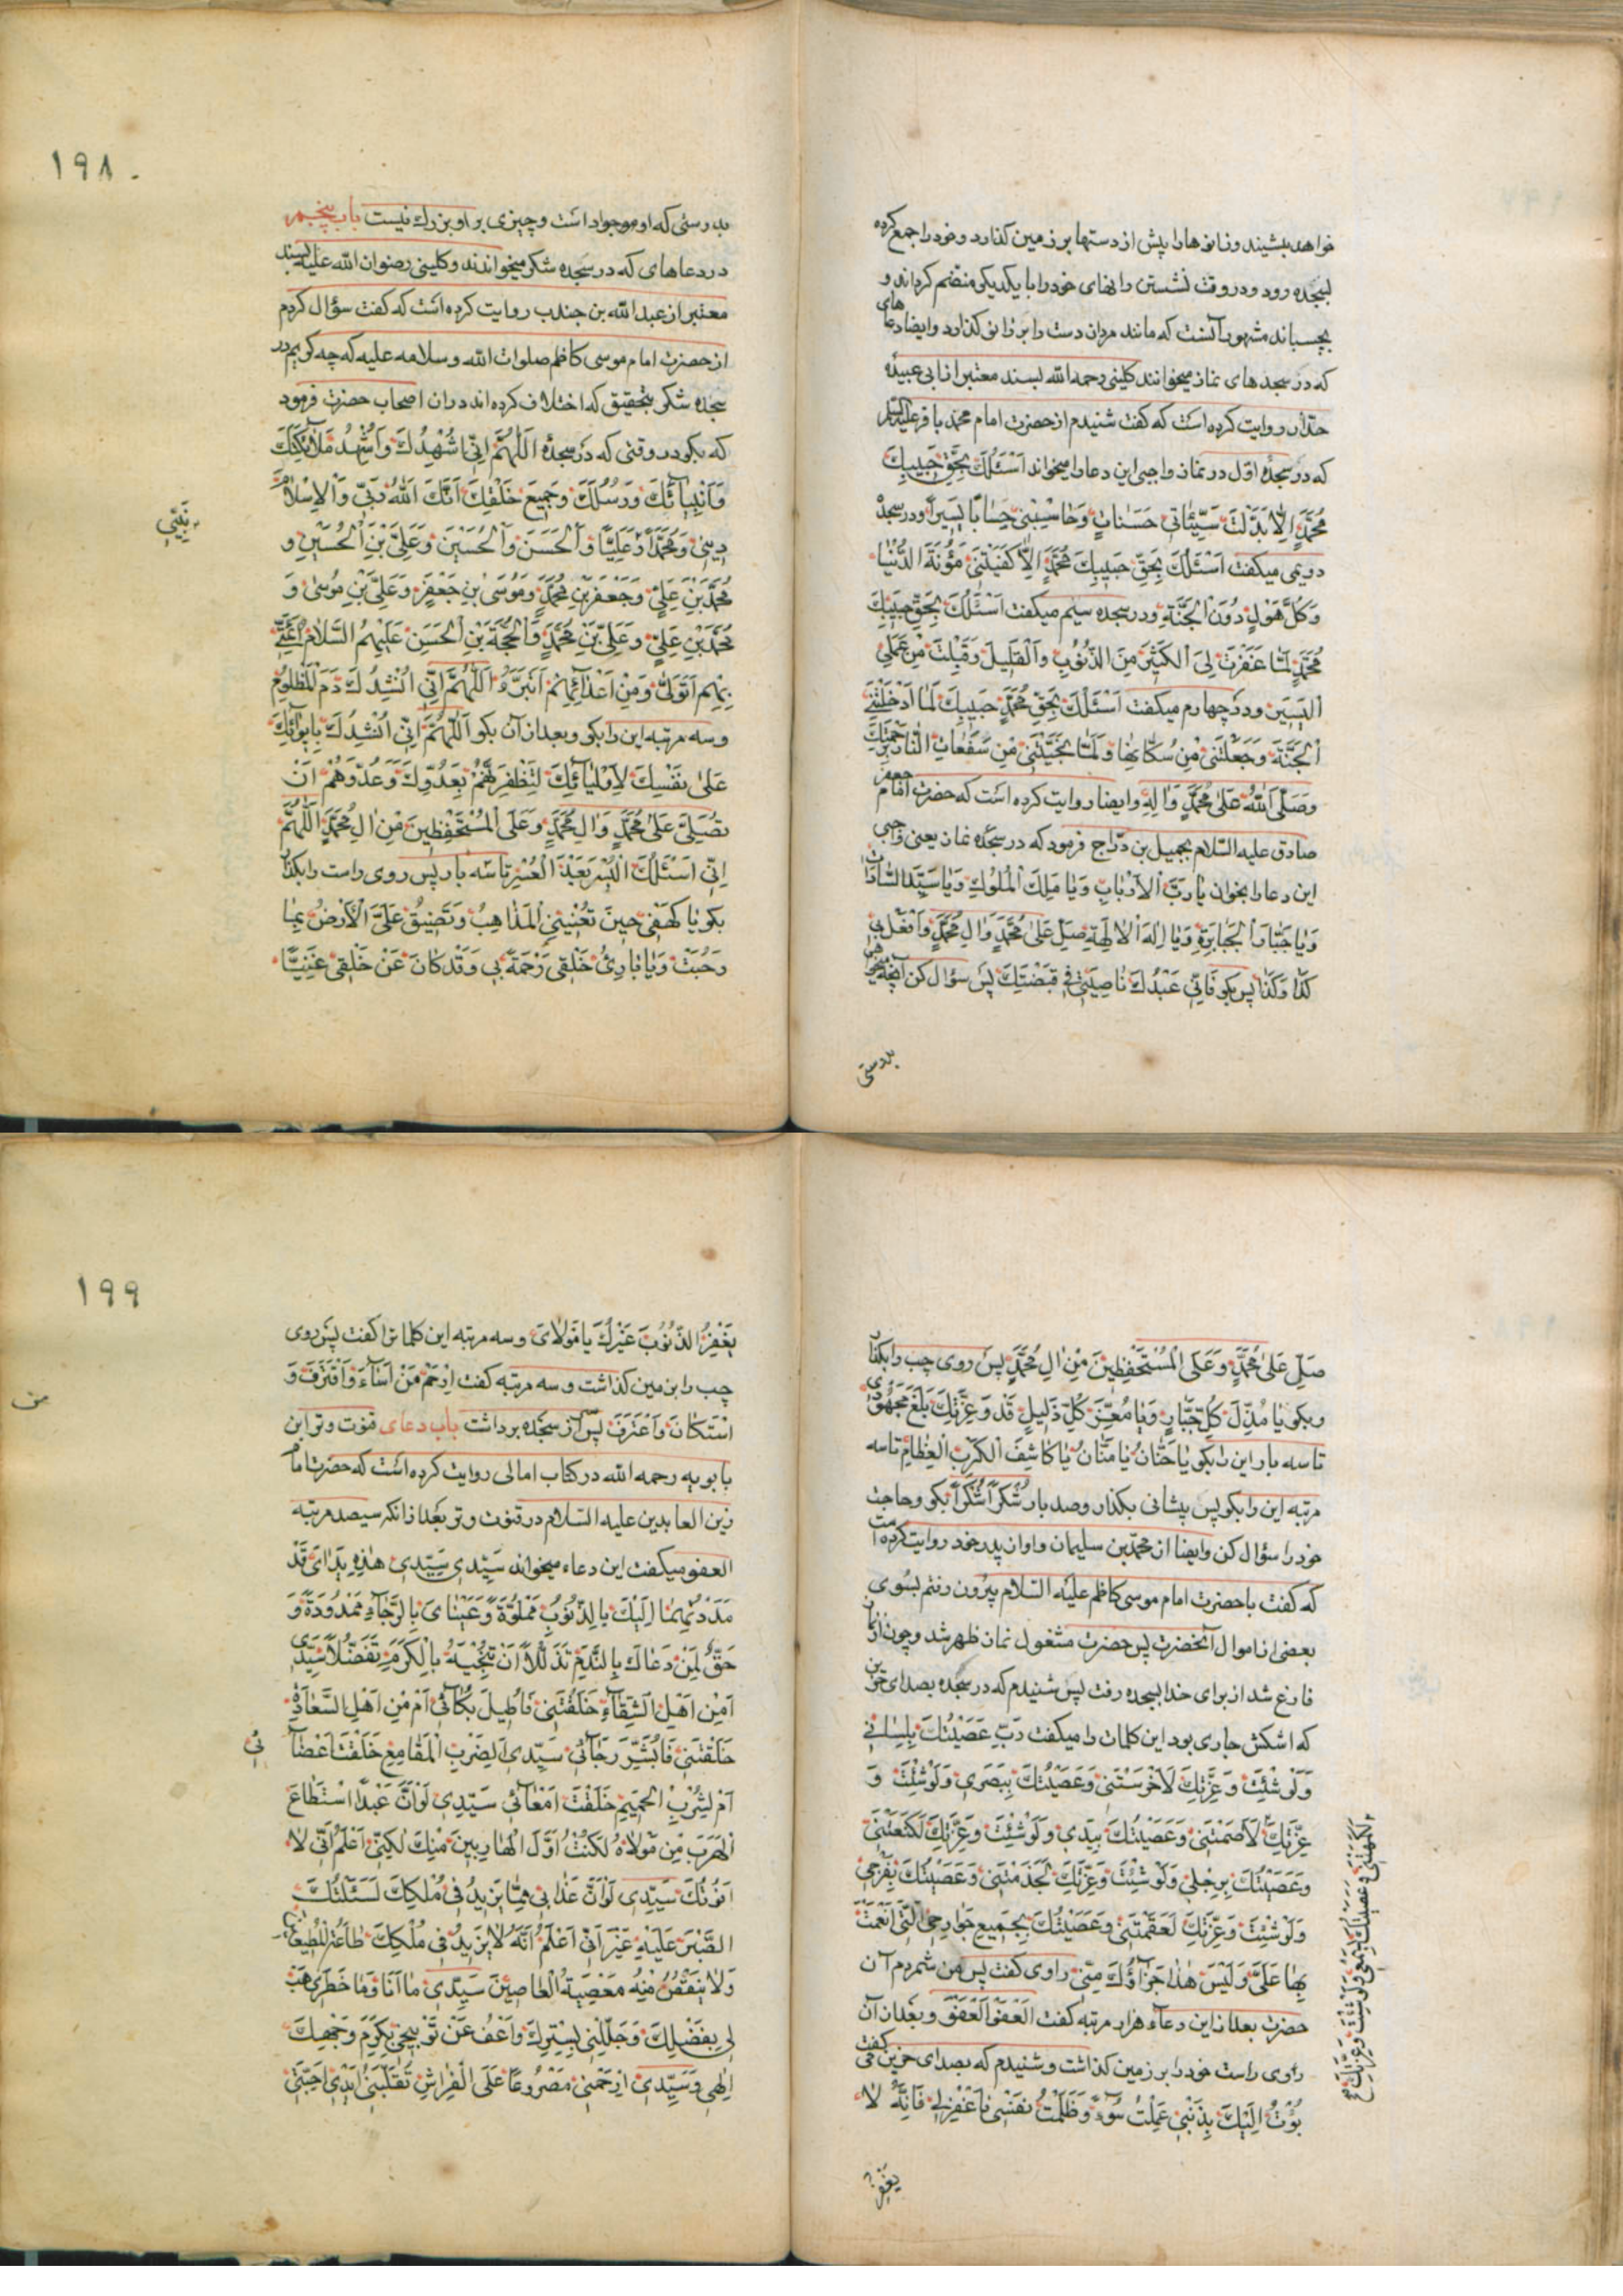 خواهد بنشیند وزانوها را پیش از دستها بر زمین کذارد وخود را جمع کرده
بسجده رود ودر وقت نشستن رانهای خود را با یکدیکر منضم کرداند و
بچسباند مشهور آنست که مانند مردان دست را بر زانو کذارد وایضا دعاهای
که در سجدهای نماز میخوانند کلینی رحمه الله بسند معتبر از ابی عبیدهٔ
حذاء روایت کرده است که کفت شنیدم از حضرت امام محمد باقر علیه السلام
که در سجدهٔ اول در نماز واجبی این دعا را میخواند اَسْئَلُكَ بِحَقِّ حَبِیبِكَ
مُحَمَّدٍ اِلّا بَدَّلْتَ سَیِّئاتی حَسَناتٍ وَحاسِبْنی حِسابًا یَسیراً ودر سجدهٔ
دویمی میکفت اَسْئَلُكَ بِحَقِّ حَبیبِكَ مُحَمَّدٍ اِلّا كَفَیْتَنی مَؤُنَةَ الدُّنْیا
وَكُلَّ هَوْلٍ دُونَ الْجَنَّةِ ودر سجده سیم میکفت اَسْئَلُكَ بِحَقِّ حَبیبِكَ
مُحَمَّدٍ لَمّا غَفَرْتَ لِیَ الْكَثیرَ مِنَ الذُّنُوبِ وَالْقَلیلَ وَقَبِلْتَ مِنْ عَمَلِی
الْیَسیرَ ودر چهارم میکفت اَسْئَلُكَ بِحَقِّ مُحَمَّدٍ حَبیبِكَ لَمّا اَدْخَلْتَنِی
الْجَنَّةَ وَجَعَلْتَنی مِنْ سُكّانِها وَلَمّا نَجَّیْتَنی مِنْ سَفَعاتِ النّارِ بِرَحْمَتِكَ
وَصَلَّی اللهُ عَلی مُحَمَّدٍ وَالِهِ وایضا روایت کرده است که حضرت امام جعفر
صادق علیه السلام بجمیل بن دراج فرمود که در سجدهٔ نماز یعنی واجبی
این دعا را بخوان یا رَبَّ الْاَرْبابِ وَیا مَلِكَ الْمُلُوكِ وَیا سَیِّدَ السّاداتِ
وَیا جَبّارَ الْجَبابِرَةِ وَیا اِلهَ الْالِهَةِ صَلِّ عَلی مُحَمَّدٍ وَالِ مُحَمَّدٍ وَافْعَلْ بی
كَذا وَكَذا پس بکو فَاِنّی عَبْدُكَ ناصِیَتی فی قَبْضَتِكَ پس سؤال کن آنچه میخواهی
بدرستی
۱۹۸
بدرستی که او موجواد است وچیزی بر او بزرك نیست باب پنجم
در دعاهای که در سجده شکر میخوانند وکلینی رضوان الله علیه بسند
معتبر از عبد الله بن جندب روایت کرده است که کفت سؤال کردم
از حضرت امام موسی کاظم صلوات الله وسلامه علیه که چه کویم در
سجده شکر بتحقیق که اختلاف کرده اند در ان اصحاب حضرت فرمود
که بکو در وقتی که در سجدهٔ اَللّهُمَّ اِنّی اُشْهِدُكَ وَاُشْهِدُ مَلائِكَتَكَ
وَاَنْبِیآئَكَ وَرُسُلَكَ وَجَمیعَ خَلْقِكَ اَنَّكَ اللهُ رَبّی وَالْاِسْلامَ
دینی وَمُحَمَّداً وَعَلِیًّا وَالْحَسَنَ وَالْحُسَیْنَ وَعَلِیَّ بْنَ الْحُسَیْنِ وَ
نَبِیّی
مُحَمَّدَ بْنَ عَلِیٍّ وَجَعْفَرَ بْنَ مُحَمَّدٍ وَمُوسَی بْنَ جَعْفَرٍ وَعَلِیَّ بْنَ مُوسی وَ
مُحَمَّدَ بْنَ عَلِیٍّ وَعَلِیَّ بْنَ مُحَمَّدٍ وَالْحُجَّةَ بْنَ الْحَسَنِ عَلَیْهِمُ السَّلامُ اَئِمَّتی
بِهِمْ اَتَوَلّی وَمِنْ اَعْدآئِهِمْ اَتَبَرَّءُ اَللّهُمَّ اِنّی اُنْشِدُكَ دَمَ الْمَظْلُومِ
وسه مرتبه این را بکو وبعد از آن بکو اَللّهُمَّ اِنّی اُنْشِدُكَ بِایوآئِكَ
عَلی نَفْسِكَ لِاَوْلِیآئِكَ لَتُظْفِرَنَّهُمْ بِعَدُوِّكَ وَعَدُوِّهِمْ اَنْ
تُصَلِّیَ عَلی مُحَمَّدٍ وَالِ مُحَمَّدٍ وَعَلَی الْمُسْتَحْفِظینَ مِنْ الِ مُحَمَّدٍ اَللّهُمَّ
اِنّی اَسْئَلُكَ الْیُسْرَ بَعْدَ الْعُسْرِ تا سه بار پس روی راست را بکذار
بکو یا كَهْفی حینَ تُعْیینِی الْمَذاهِبُ وَتَضیقُ عَلَیَّ الْاَرْضُ بِما
رَحُبَتْ وَیا بارِئَ خَلْقی رَحْمَةً بی وَقَدْ كانَ عَنْ خَلْقی غَنِیًّا
صَلِّ عَلی مُحَمَّدٍ وَعَلَی الْمُسْتَحْفِظینَ مِنْ الِ مُحَمَّدٍ پس روی چپ را بکذار
وبکو یا مُذِلَّ كُلِّ جَبّارٍ وَیا مُعِزَّ كُلِّ ذَلیلٍ قَدْ وَعِزَّتِكَ بَلَغَ مَجْهُودی
تا سه بار این را بکو یا حَنّانُ یا مَنّانُ یا كاشِفَ الْكُرَبِ الْعِظامِ تا سه
مرتبه این را بکو پس پیشانی بکذار وصد بار شُكْراً شُكْراً بکو وحاجت
خود را سؤال کن وایضا از محمد بن سلیمان واو از پدر خود روایت کرده است
که کفت با حضرت امام موسی کاظم علیه السلام بیرون رفتم بسوی
بعضی از اموال آنحضرت پس حضرت مشغول نماز ظهر شد وچون از نماز
فارغ شد از برای خدا بسجده رفت پس شنیدم که در سجده بصدای حزین
که اشکش جاری بود این کلمات را میکفت رَبِّ عَصَیْتُكَ بِلِسانی
وَلَوْ شِئْتَ وَعِزَّتِكَ لَاَخْرَسْتَنی وَعَصَیْتُكَ بِبَصَری وَلَوْ شِئْتَ وَ
عِزَّتِكَ لَاَصْمَمْتَنی وَعَصَیْتُكَ بِیَدی وَلَوْ شِئْتَ وَعِزَّتِكَ لَكَنَّعْتَنی
لَاَكْمَهْتَنی وَعَصَیْتُكَ بِسَمْعی وَلَوْ شِئْتَ وَعِزَّتِكَ
وَعَصَیْتُكَ بِرِجْلی وَلَوْ شِئْتَ وَعِزَّتِكَ لَجَذَمْتَنی وَعَصَیْتُكَ بِفَرْجی
وَلَوْ شِئْتَ وَعِزَّتِكَ لَعَقَمْتَنی وَعَصَیْتُكَ بِجَمیعِ جَوارِحِی الَّتی اَنْعَمْتَ
بِها عَلَیَّ وَلَیْسَ هذا جَزآؤُكَ مِنّی راوی کفت پس من شمردم آن
حضرت بعد از این دعاء هزار مرتبه کفت اَلْعَفْوَ اَلْعَفْوَ وبعد از آن
راوی راست خود را بر زمین کذاشت وشنیدم که بصدای حزین می کفت
بُؤْتُ اِلَیْكَ بِذَنْبی عَمِلْتُ سُوءً وَظَلَمْتُ نَفْسی فَاغْفِرْ لی فَاِنَّهُ لا
یَغْفِرُ
۱۹۹
یَغْفِرُ الذُّنُوبَ غَیْرُكَ یا مَوْلایَ وسه مرتبه این کلماترا کفت پس روی
چپ را بر زمین کذاشت وسه مرتبه کفت اِرْحَمْ مَنْ اَسآءَ وَاقْتَرَفَ وَ
اسْتَكانَ وَاعْتَرَفَ پس از سجده برداشت باب دعای قنوت وتر ابن
بابویه رحمه الله در کتاب امالی روایت کرده است که حضرت امام
زین العابدین علیه السلام در قنوت وتر بعد از انکه سیصد مرتبه
العفو میکفت این دعاء میخواند سَیِّدی سَیِّدی هذِهِ یَدایَ قَدْ
مَدَدْتُهُما اِلَیْكَ بِالذُّنُوبِ مَمْلُوَّةً وَعَیْنایَ بِالرَّجآءِ مَمْدُودَةً وَ
حَقٌّ لِمَنْ دَعاكَ بِالنَّدَمِ تَذَلُّلاً اَنْ تُجیبَهُ بِالْكَرَمِ تَفَضُّلاً سَیِّدی
اَمِنْ اَهْلِ الشَّقآءِ خَلَقْتَنی فَاُطیلَ بُكآئی اَمْ مِنْ اَهْلِ السَّعادَةِ
خَلَقْتَنی فَاُبَشِّرَ رَجآئی سَیِّدی اَلِضَرْبِ الْمَقامِعِ خَلَقْتَ اَعْضآئی
اَمْ لِشُرْبِ الْحَمیمِ خَلَقْتَ اَمْعآئی سَیِّدی لَوْ اَنَّ عَبْداً اسْتَطاعَ
الْهَرَبَ مِنْ مَوْلاهُ لَكُنْتُ اَوَّلَ الْهارِبینَ مِنْكَ لكِنّی اَعْلَمُ اَنّی لا
اَفُوتُكَ سَیِّدی لَوْ اَنَّ عَذابی مِمّا یَزیدُ فی مُلْكِكَ لَسَئَلْتُكَ
الصَّبْرَ عَلَیْهِ غَیْرَ اَنّی اَعْلَمُ اَنَّهُ لا یَزیدُ فی مُلْكِكَ طاعَةُ الْمُطیعینَ
وَلا یَنْقُصُ مِنْهُ مَعْصِیَةُ الْعاصینَ سَیِّدی ما اَنَا وَما خَطَری هَبْ
لی بِفَضْلِكَ وَجَلِّلْنی بِسِتْرِكَ وَاعْفُ عَنْ تَوْبیخی بِكَرَمِ وَجْهِكَ
اِلهی وَسَیِّدی اِرْحَمْنی مَصْرُوعًا عَلَی الْفِراشِ تُقَلِّبُنی اَیْدی اَحِبَّتی